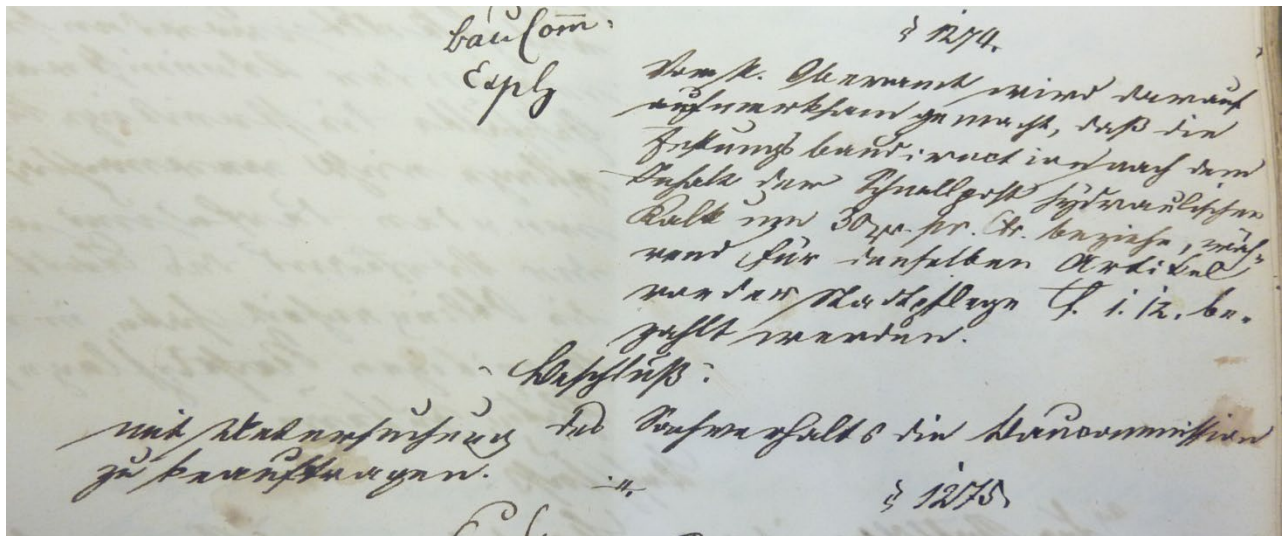 BauComm:
§ 1274.
Exph
Vom k. Oberamt wird darauf
aufmerksam gemacht, daß die
Festungsbaudirection nach dem
Inhalt der Schnellpost hydraulischen
Kalk um 30 xr. pr. Ctr. beziehe, wäh-
rend für denselben Artikel
von der Stadtpflege f. 1. 12. be-
zahlt werden.
Beschluß:
mit Untersuchung des Sachverhalts die Baucommission
zu beauftragen.
§ 1275.